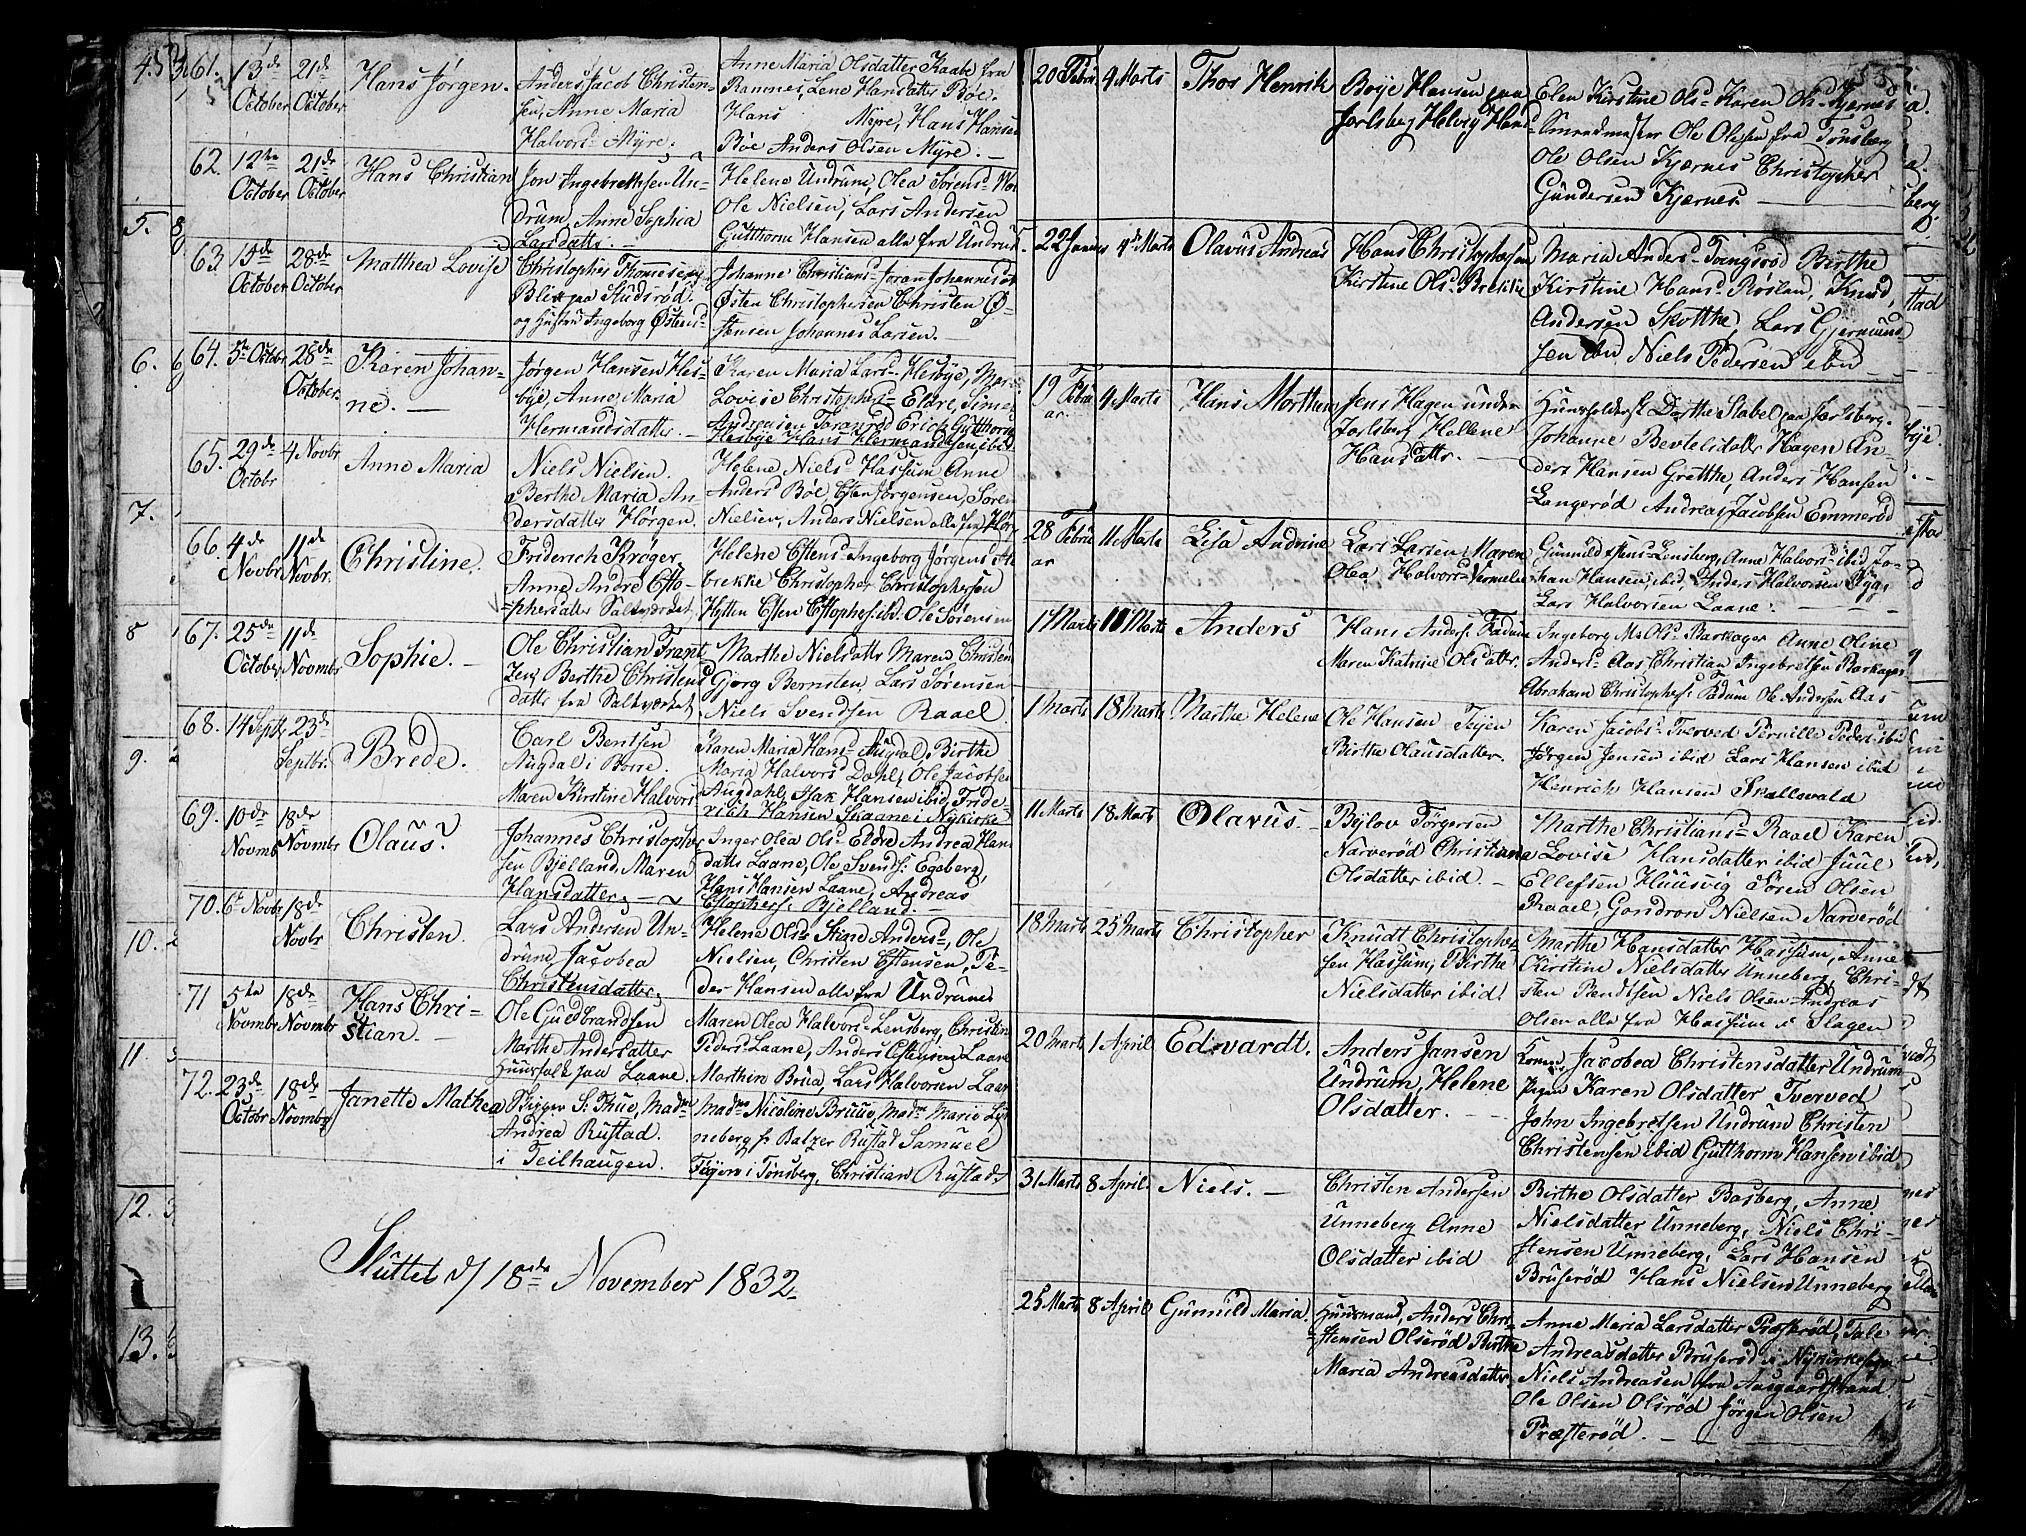 61. 13de October 21de October Hans Jørgen.
Anders Jacob Christen-
sen, Anne Maria
Halvors- Myre.
Anne Maria Olsdatter Raabe fra
Ramnes, Lene Hansdatter Bøe.
Hans Myre, Hans Hansen
Bøe Anders Olsen Myre. —
62. 12te October 21de October Hans Christian
Jon Ingebrethsen Un-
drum, Anne Sophia
Larsdatter. —
Helene Undrum, Olea Sørens-
Ole Nielsen, Lars Andersen
Gutthorm Hansen alle fra Undrum
63. October 28de October Matthea Lovise
Christopher Thomesen
Blix paa Studsrød.
og Hustru Ingeborg Østens-
Johanne Christians- Johannesdt
Østen Christophersen Christen Ø-
stensen Johannes Larsen.
64. 5te Octobr 28de October Karen Johan-
ne. —
Jørgen Hansen Hes-
bye, Anne Maria
Hermandsdatter. —
Karen Maria Lars- Hesbye, Mar-
Lovise Christophers- Eldre, Simen
Andreasen Foranrød Erich Gutthorm
Hesbye Hans Hermandsen ibid
65. 29de Octobr 4 Novbr Anne Maria
Niels Nielsen.
Berthe Maria An
dersdatter Hørgen.
Helene, Niels Hassum Anne
Anders- Bøe, Esten Jørgensen, Søren
Nielsen, Anders Nielsen alle fra Hør
66. 4de Novbr. 11de Novbr. Christine.
Friderich Krøger
Anne Andre Chto-
phersdatter Saltværket
Helene Estens- Ingeborg Jørgens
brekke Christopher Christophersen
Hytten Esten Chtophers. ibd. Ole Sørensen
67. 25de October 11de Novmbr Sophie. —
Ole Christian Frant
zen, Berthe Christens
datter fra Saltværket
Marthe Nielsdatter Maren Christen
Gjørg Berntsen, Lars Sørensen
Niels Svendsen Raael.
68. 14 Septb. 23de Septbr. Brede.
Carl Bentsen
Augdal i Borre.
Maren Kirstine Halvors
Karen Maria Hans- Augdal, Birthe
Maria Halvors- Dahl, Ole Jacobsen
Augdahl, Isak Hansen ibid, Fride-
rich Hansen Skaane i Nykirke
69. 10de Novmb 18de Novmbr Olaus.
Johannes Christopher
sen Bjelland, Maren
Hansdatter. —
Inger Olea Ols- Eldre Andrea Han
datter Laane, Ole Svends. Egeberg,
Hans Hansen Laane, Andreas
Chtophers. Bjelland. —
70. 6te Novbr 18de Novbr Christen.
Lars Andersen Un-
drum, Jacobea
Christensdatter,
Helene Ols- Stine Anders-, Ole
Nielsen, Christen Estensen, Pe-
der Hansen alle fra Undrum
71 5te Novmbr 18de Novmbr Hans Chri-
stian. —
Ole Guldbrandsen
Marthe Andersdatter
Huusfolk paa Laane.
Maren Olea Halvors- Lensberg, Christin
Peders- Laane, Anders Estensen Laane
Marthin Brua, Lars Halvorsen Laan
72. 23de Octobr 18de Novmbr Janette Mathea
Bigger S. Thue, Madme
Andrea Rustad.
i Teilhaugen.
Madme Nicoline Bruun, Madme Marie Lyn
neberg, hr Balzer Rustad Samuel
Fagern i Tønsberg, Christian Rustad.
Sluttet d/ 18nde November 1832.
20 Febru 4 Marts Thor Henrik
Bøye Hansen paa
Jarlsberg Helvig Hans-
Elen Kirstine Ols- Karen Ols- Kjærnes
Smeedmester Ole Olsen fra Tønsberg
Ole Olsen Kjærnes Christopher
Gundersen Kjærnes. —
22 Januar 4de Marts Olavus Andreas
Hans Christophersen
Kirstine Ols- Brekke
Maria Anders- Tvingsrød Birthe
Kirstine Hans- Røslan, Knud
Andersen Skotthe, Lars Gjermund
sen ibn Niels Pedersen ibn —
19 Februar 4 Marts Hans Morthen
Jens Hagen under
Jarlsberg Hellene
Hansdatter. —
Huusholdersk. Dorthe Stabel paa Jarlsberg.
Johanne Bertelsdatter Hagen An-
ders Hansen Gretthe, Anders Hansen
Langerød Andreas Jacobsen Emmerød
28 Februar 11 Marts Lisa Andrine
Lars Larsen, Maren
Olea Halvors-
Gunnild Jens- Lensberg, Anne Halvors- ibid, Jo-
han Hansen, ibid, Anders Halvorsen
Lars Halvorsen Laane. —
17 Marts 18 Marts Anders
Hans Anders. Fadum
Maren Katrine Olsdatter.
Ingeborg Ms Ols- Barkager Anne Oline
Anders- Aas Christian Ingebretsen Barkager
Abraham Christophers. Fadum Ole Andersen Aas
1 Marts 18 Marts Marthe Helene
Ole Hansen Teijen
Birthe Olausdatter.
Karen Jacobs- Tverved Pernille Peders- ibid
Jørgen Jensen ibid Lars Hansen ibid
Henrich Hansen Skallevald
11 Marts 18 Marts Olavus. —
Bylov Torgersen
Narverød Christiane
Olsdatter ibid. —
Marthe Christians- Raael Karen
Lovise Hansdatter ibid Juul
Ellefsen Huusvig Søren Olsen
Raael, Gondron Nielsen Narverød
18 Marts 25 Marts Christopher
Knudt Christopher-
sen Hassum, Birthe
Nielsdatter ibid.
Marthe Hansdatter Hassum, Anne
Kirstine Nielsdatter Unneberg, Chri-
sten Bendtsen Niels Olsen Andreas
Olsen alle fra Hassum i Slagen
20 Marts 1 April Edvardt.
Anders Jansen
Undrum, Helene
Olsdatter. —
Konen Jacobea Christensdatter Undrum
Pigen Karen Olsdatter Tverved
John Ingebretsen Undrum Christen
Christensen ibid Gutthorm Hansen ibid.
31 Marts 8 April Niels. —
Christen Andersen
Unneberg Anne
Olsdatter ibid
Birthe Olsdatter Basberg, Anne
Nielsdatter Unneberg, Niels Chri-
stensen Unneberg, Lars Hansen
Bruserød Hans Nielsen Unneberg
25 Marts 8 April Gunnild Maria.
Huusmand, Anders Chri-
stensen Olsrød Birthe
Maria Andreasdatter
Anne Maria Larsdatter Præsterød, Tale
Andreasdatter Bruserød i Nykirkesogn
Niels Andreasen fra Aasgaardstrand
Ole Olsen Olsrød Jørgen Olsen
Præsterød. —